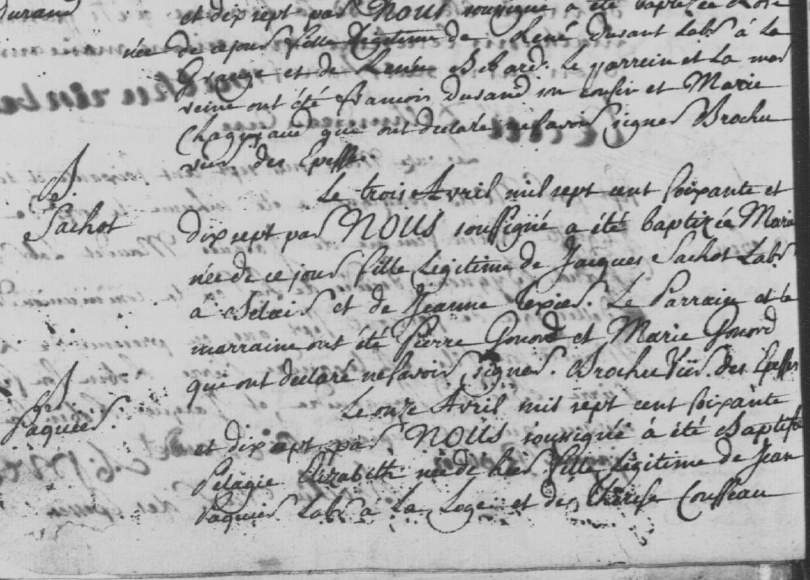 Durand
et dix sept par NOUS soussigné a été baptizée
née de ce jour fille légitime de René Durant Labr à la
Grange et de Renée le parrein et la mar
reine ont été francois Durand son cousin et Marie
que ont declaré ne savoir signer Brochu
vic des Epesses.
B.
Sachot
Le trois Avril mil sept cent soixante et
dix sept par NOUS soussigné a été baptizée Marie
née de ce jour fille legitime de Jacques Sachot Labr
a et de Jeanne Le Parrain et la
marraine ont été Pierre Gonord et Marie Gonord
que ont declaré ne savoir signer. Brochu Vic. des Epesses
B
Paquier.
Le onze Avril mil sept cent soixante
et dix sept par NOUS soussigné à été Baptisée
Pelagie Elizabeth née de hier fille legitime de Jean
Paquier Labr à la Loge et de Therese Cousseau